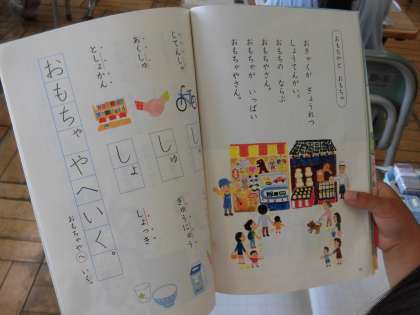 おもちやと おもちゃ
おきゃくが ぎょうれつ
しょうてんがい。
おもちの ならぶ
おもちやさん。
おもちゃが いっぱい
おもちゃやさん。
じてんしゃ
ぎゅうにゅう
しゅ
あくしゅ
しょっき
しょ
としょかん
おもちゃやへいく。
おもちゃやへいく。